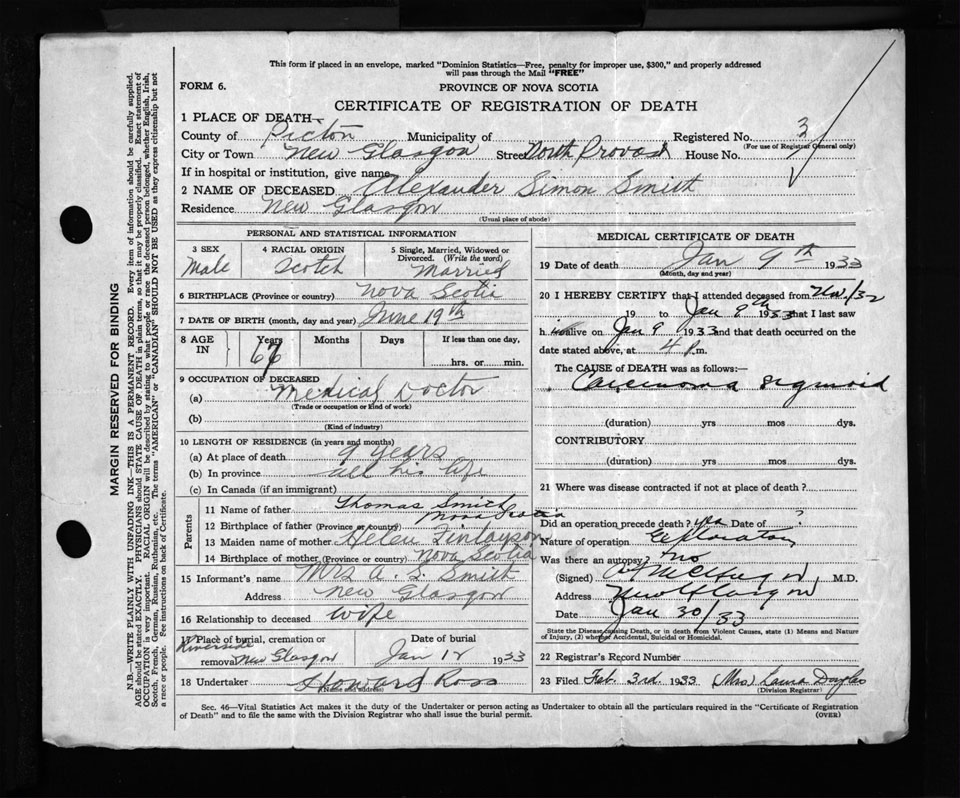 This form if placed in an envelope, marked "Dominion Statistics—Free, penalty for improper use, $300," and properly addressed
will pass through the Mail "FREE"
FORM 6. PROVINCE OF NOVA SCOTIA
CERTIFICATE OF REGISTRATION OF DEATH
1 PLACE OF DEATH—
County of Pictou Municipality of Registered No. 3
(For use of Registrar General only)
City or Town New Glasgow Street North Provost House No.
If in hospital or institution, give name
2 NAME OF DECEASED Alexander Simon Smith
Residence New Glasgow
(Usual place of abode)
PERSONAL AND STATISTICAL INFORMATION
3 SEX 4 RACIAL ORIGIN 5 Single, Married, Widowed or
Divorced. (Write the word)
Male Scotch Married
6 BIRTHPLACE (Province or country) Nova Scotia
7 DATE OF BIRTH (month, day and year) June 19th
8 AGE IN Years Months Days If less than one day,
hrs. or min.
9 OCCUPATION OF DECEASED
(a) Medical Doctor
(Trade or occupation or kind of work)
(b)
(Kind of industry)
10 LENGTH OF RESIDENCE (in years and months)
(a) At place of death 9 years
(b) In province all his life
(c) In Canada (if an immigrant)
Parents
11 Name of father Thomas Smith
12 Birthplace of father (Province or country) Nova Scotia
13 Maiden name of mother Helen Finlayson
14 Birthplace of mother (Province or country) Nova Scotia
15 Informant's name Mrs A. S. Smith
Address New Glasgow
16 Relationship to deceased wife
17 Place of burial, cremation or Date of burial
Riverside
removal New Glasgow Jan 12 1933
18 Undertaker Howard Ross
(Name and address)
MEDICAL CERTIFICATE OF DEATH
19 Date of death Jan 9th 1933
(Month, day and year)
20 I HEREBY CERTIFY that I attended deceased from Nov./32
19 to Jan 9th 1933 that I last saw
h im alive on Jan 9 1933 and that death occurred on the
date stated above, at 4 P.m.
The CAUSE of DEATH was as follows:—
Carcinoma sigmoid
(duration) yrs mos dys.
CONTRIBUTORY
(duration) yrs mos dys.
21 Where was disease contracted if not at place of death?
Did an operation precede death? yes Date of ?
Nature of operation Exploratory
Was there an autopsy? no
(Signed) M.D.
Address New Glasgow
Date Jan 30/33
State the Disease causing Death, or in death from Violent Causes, state (1) Means and Nature
of Injury, (2) whether Accidental, Suicidal or Homicidal.
22 Registrar's Record Number
23 Filed Feb 3rd 1933 (Mrs) Laura Douglas
(Division Registrar)
Sec. 46—Vital Statistics Act makes it the duty of the Undertaker or person acting as Undertaker to obtain all the particulars required in the "Certificate of Registration
of Death" and to file the same with the Division Registrar who shall issue the burial permit.
(OVER)
MARGIN RESERVED FOR BINDING
N.B.—WRITE PLAINLY WITH UNFADING INK—THIS IS A PERMANENT RECORD. Every item of information should be carefully supplied.
AGE should be stated EXACTLY. PHYSICIANS should STATE CAUSE OF DEATH in plain terms, so that it may be properly classified. Exact statement of
OCCUPATION is very important. RACIAL ORIGIN will be described by stating to what people or race the deceased person belonged, whether English, Irish,
Scotch, French, German, Russian, Ruthenian, etc. The terms "AMERICAN" or "CANADIAN" SHOULD NOT BE USED as they express citizenship but not
a race or people. See instructions on back of Certificate.